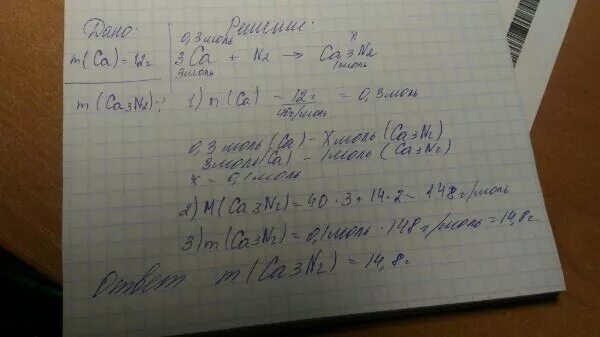 Дано:
m(Ca)=12г
m(Ca3N2)-?
Решение:
0,3моль x
3Ca + N2 → Ca3N2
3моль 1моль
1) n(Ca) = 12г / 40г/моль = 0,3моль
0,3моль(Ca) - Xмоль(Ca3N2)
3моль(Ca) - 1моль(Ca3N2)
x = 0,1моль
2) M(Ca3N2) = 40·3+14·2 = 148г/моль
3) m(Ca3N2) = 0,1моль·148г/моль = 14,8г
Ответ: m(Ca3N2) = 14,8г